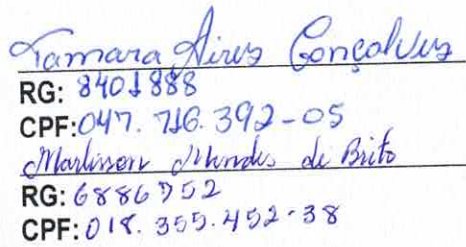 Tamara Aires Gonçalves
RG: 8401888
CPF: 047.716.392-05
Marlisson Mendes de Brito
RG: 6886752
CPF: 018.355.452-38